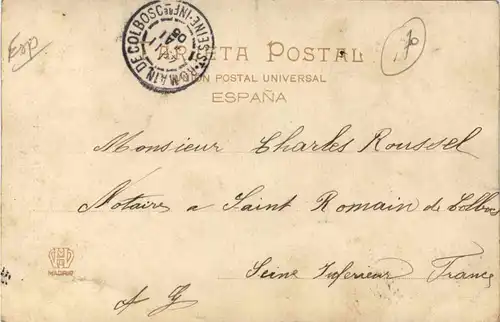 Esp
ST ROMAIN DE COLBOSC SEINE-INFRE
TARJETA POSTAL
UNIÓN POSTAL UNIVERSAL
ESPAÑA
Monsieur Charles Roussel
Notaire a Saint Romain de Colbos
Seine Inferieur France
MADRID